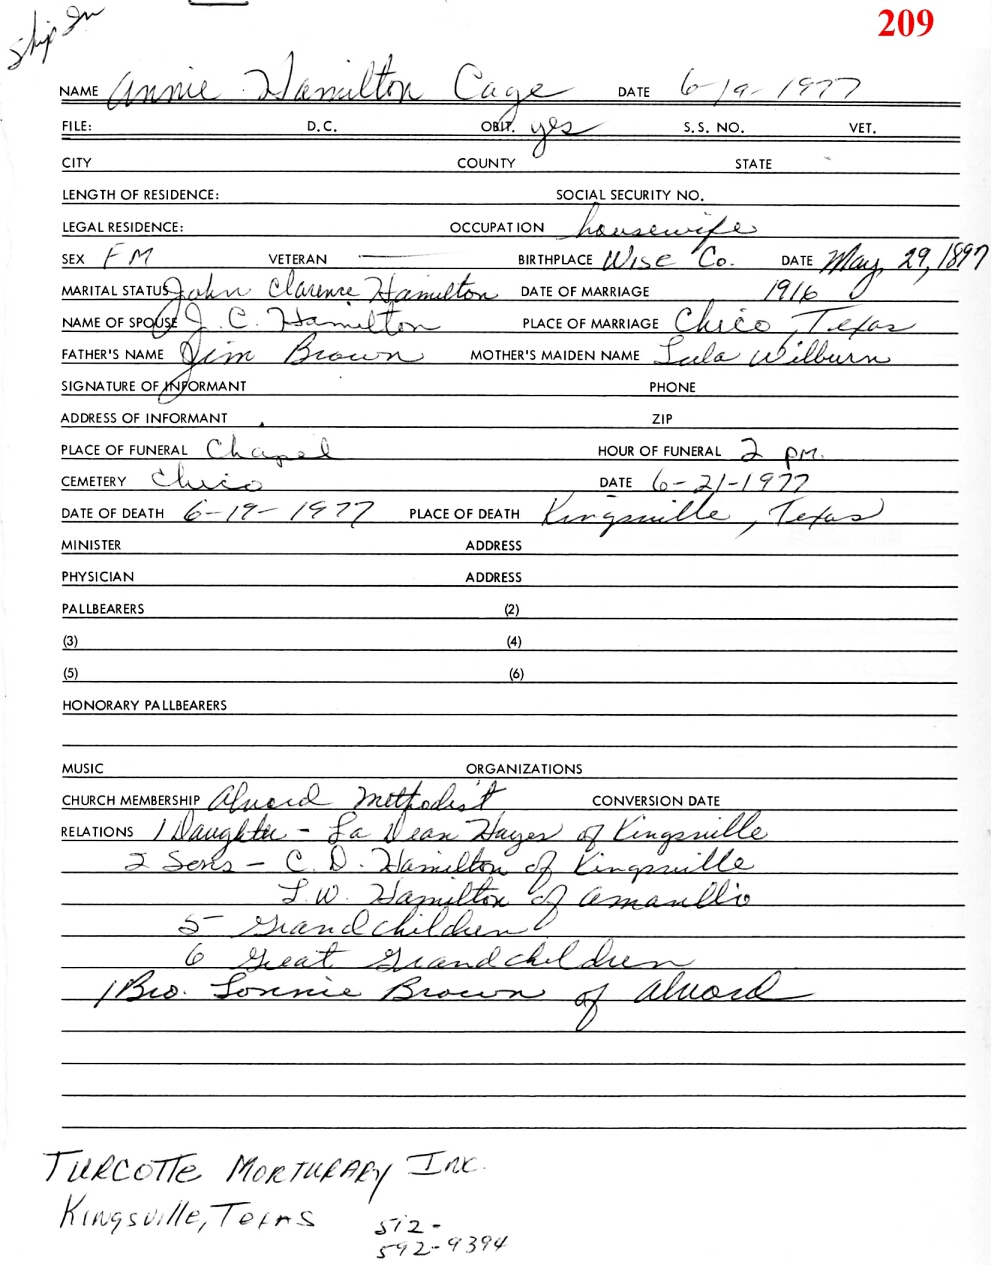 Ship In
209
NAME Annie Hamilton Cage DATE 6-19-1977
FILE: D.C. OBIT. yes S.S. NO. VET.
CITY COUNTY STATE
LENGTH OF RESIDENCE: SOCIAL SECURITY NO.
LEGAL RESIDENCE: OCCUPATION housewife
SEX FM VETERAN BIRTHPLACE Wise Co. DATE May 29, 1897
MARITAL STATUS John Clarence Hamilton DATE OF MARRIAGE 1916
NAME OF SPOUSE J. C. Hamilton PLACE OF MARRIAGE Chico, Texas
FATHER'S NAME Jim Brown MOTHER'S MAIDEN NAME Lula Wilburn
SIGNATURE OF INFORMANT PHONE
ADDRESS OF INFORMANT ZIP
PLACE OF FUNERAL Chapel HOUR OF FUNERAL 2 pm.
CEMETERY Chico DATE 6-21-1977
DATE OF DEATH 6-19-1977 PLACE OF DEATH Kingsville, Texas
MINISTER ADDRESS
PHYSICIAN ADDRESS
PALLBEARERS (2)
(3) (4)
(5) (6)
HONORARY PALLBEARERS
MUSIC ORGANIZATIONS
CHURCH MEMBERSHIP Alvord Methodist CONVERSION DATE
RELATIONS 1 Daughter - La Dean Hayes of Kingsville
2 Sons - C. D. Hamilton of Kingsville
L. W. Hamilton of Amarillo
5 Grandchildren
6 Great Grandchildren
1 Bro. Lonnie Brown of Alvord
TURCOTTE MORTURARY INC.
Kingsville, Texas
512-
592-9394